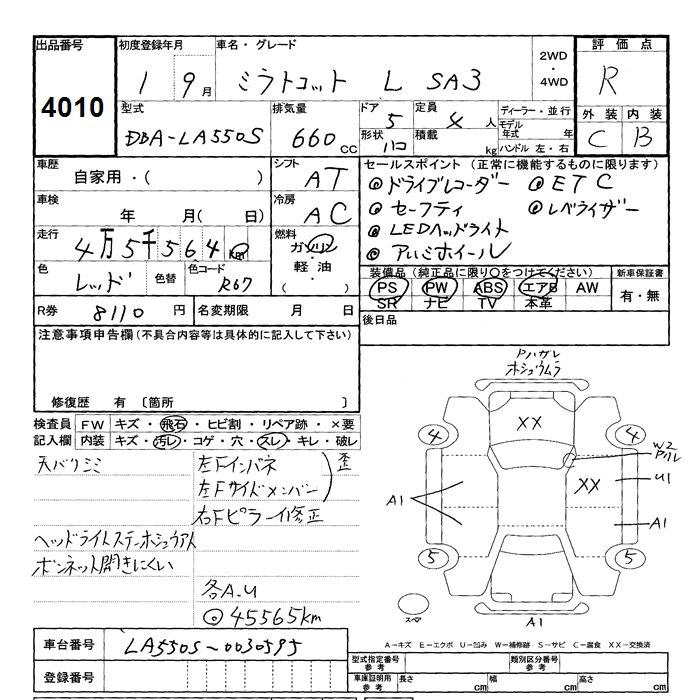 出品番号 初度登録年月 車名・グレード 2WD・4WD 評価点
4010 1 9月 ミラトコット L SA3 R
型式 排気量 ドア 定員 ディーラー・並行 外装 内装
DBA-LA550S 660cc 5 4人 モデル年式 年 C B
形状 ハコ 積載 kg ハンドル 左・右
車歴 シフト セールスポイント (正常に機能するものに限ります)
自家用・( ) AT ◎ドライブレコーダー ◎ETC
車検 冷房 ◎セーフティ ◎レベライザー
年 月( 日) AC ◎LEDヘッドライト
走行 燃料 ◎アルミホイール
4万5千564km ガソリン・軽油・( )
色 色替 色コード 装備品 (純正品に限り○をつけてください) 新車保証書
レッド R67 PS PW ABS エアB AW 有・無
SR ナビ TV 本革
R券 8110円 名変期限 月 日 後日品
注意事項申告欄(不具合内容等は具体的に記入して下さい)
修復歴 有 〔箇所 〕
検査員記入欄 FW キズ・飛石・ヒビ割・リペア跡・×要
内装 キズ・汚レ・コゲ・穴・スレ・キレ・破レ
天バリシミ 左Fインパネ
左Fサイドメンバー 歪
右Fピラー修正
ヘッドライトステーホシュウアト
ボンネット開きにくい
各A.U
◎45565km
Pハガレ
ホシュウムラ
XX
4 4
W2
Pハレ
A1 XX U1
A1
5 5
スペア
A1
車台番号 LA550S-0030595
登録番号
A−キズ E−エクボ U−凹み W−補修跡 S−サビ C−腐食 XX−交換済
型式指定番号 参考 類別区分番号 参考
車庫証明用 参考 長さ cm 幅 cm 高さ cm